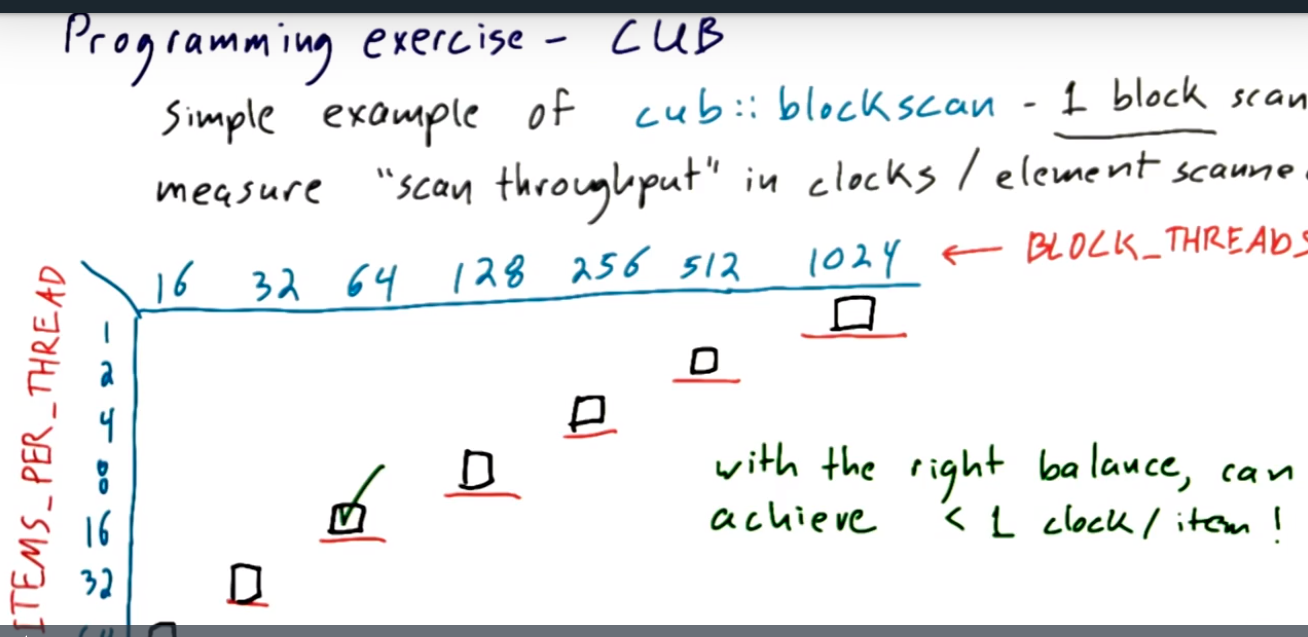 Programming exercise - CUB
simple example of cub::blockscan - 1 block scan
measure "scan throughput" in clocks / element scanne
16 32 64 128 256 512 1024 ← BLOCK_THREADS
ITEMS_PER_THREAD
1
2
4
8
16
32
with the right balance, can
achieve < 1 clock / item !